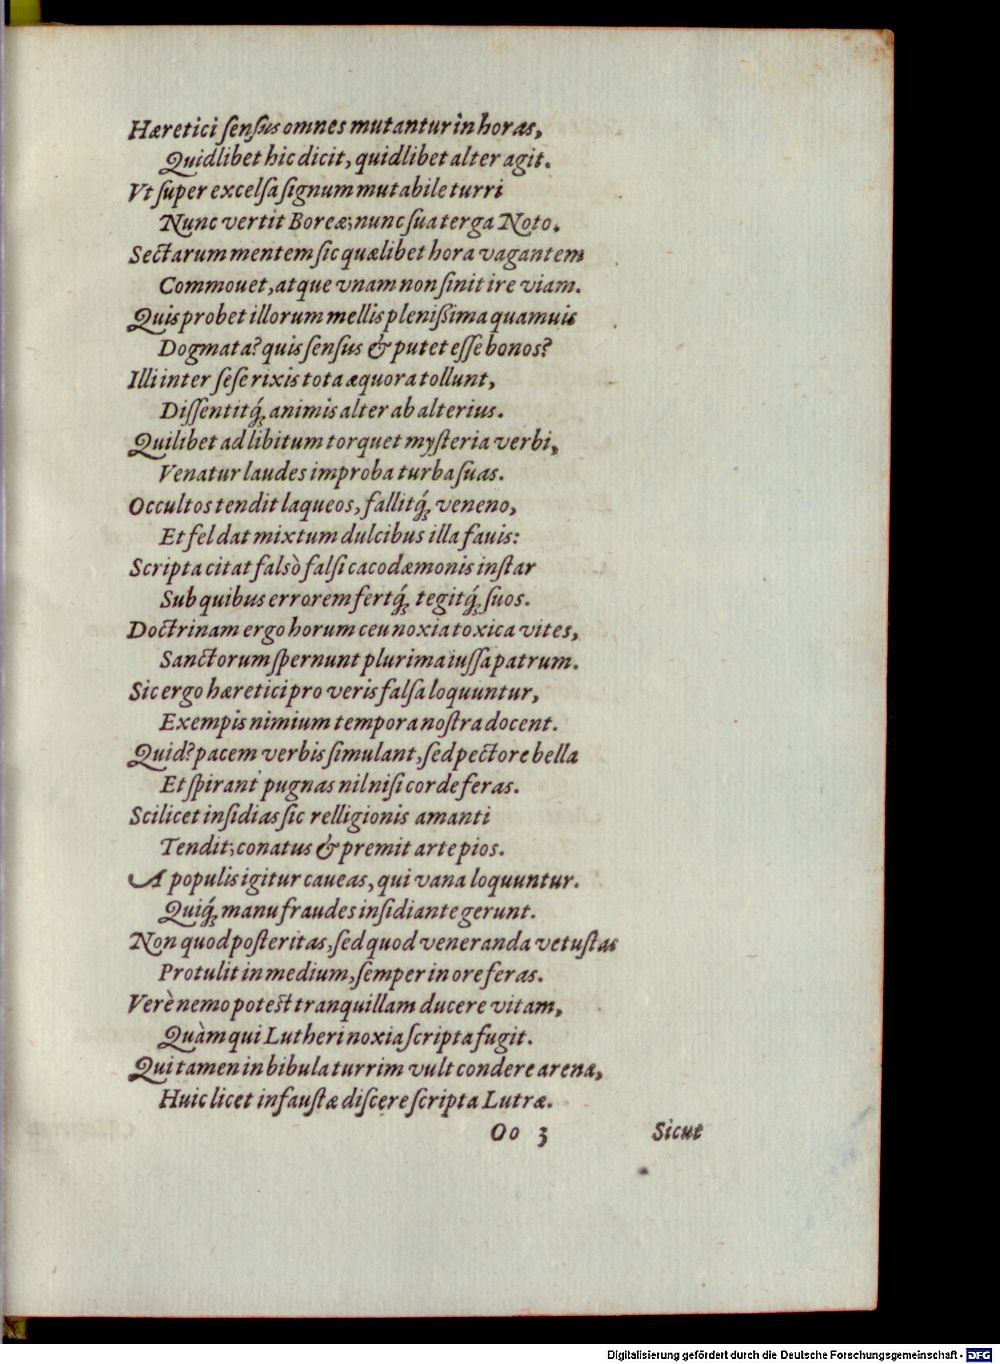 Hæretici ſenſus omnes mutantur in horas,
Quidlibet hic dicit, quidlibet alter agit.
Vt ſuper excelſa ſignum mutabile turri
Nunc vertit Boreæ; nunc ſua terga Noto.
Sectarum mentem ſic quælibet hora vagantem
Commouet, atque vnam non ſinit ire viam.
Quis probet illorum mellis pleniſſima quamuis
Dogmata? quis ſenſus & putet eſſe bonos?
Illi inter ſeſe rixis tota æquora tollunt,
Diſſentitq́; animis alter ab alterius.
Quilibet ad libitum torquet myſteria verbi,
Venatur laudes improba turba ſuas.
Occultos tendit laqueos, fallitq́; veneno,
Et fel dat mixtum dulcibus illa fauis:
Scripta citat falsò falſi cacodæmonis inſtar
Sub quibus errorem fertq́; tegitq́; ſuos.
Doctrinam ergo horum ceu noxia toxica vites,
Sanctorum ſpernunt plurima iuſſa patrum.
Sic ergo hæretici pro veris falſa loquuntur,
Exempis nimium tempora noſtra docent.
Quid? pacem verbis ſimulant, ſed pectore bella
Et ſpirant pugnas nil niſi corde feras.
Scilicet inſidias ſic relligionis amanti
Tendit; conatus & premit arte pios.
A populis igitur caueas, qui vana loquuntur.
Quiq́; manu fraudes inſidiante gerunt.
Non quod poſteritas, ſed quod veneranda vetuſtas
Protulit in medium, ſemper in ore feras.
Verè nemo poteſt tranquillam ducere vitam,
Quàm qui Lutheri noxia ſcripta fugit.
Qui tamen in bibula turrim vult condere arena,
Huic licet infauſtæ diſcere ſcripta Lutræ.
Oo 3 Sicut
Digitalisierung gefördert durch die Deutsche Forschungsgemeinschaft - DFG